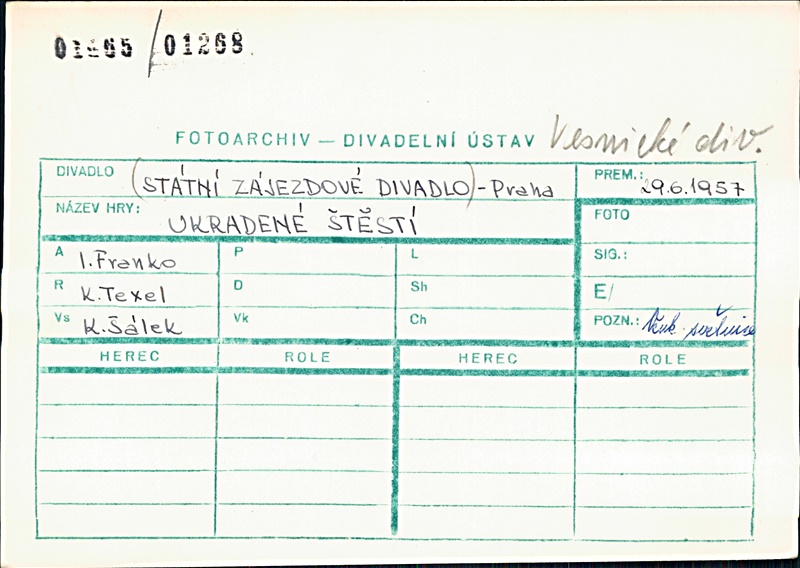 01265/01268
FOTOARCHIV — DIVADELNÍ ÚSTAV Vesnické div.
DIVADLO (STÁTNÍ ZÁJEZDOVÉ DIVADLO) - Praha PREM.: 29.6.1957
NÁZEV HRY: UKRADENÉ ŠTĚSTÍ FOTO
A I. Franko P L SIG.:
R K. Texel D Sh E/
Vs K. Šálek Vk Ch POZN.:
HEREC ROLE HEREC ROLE